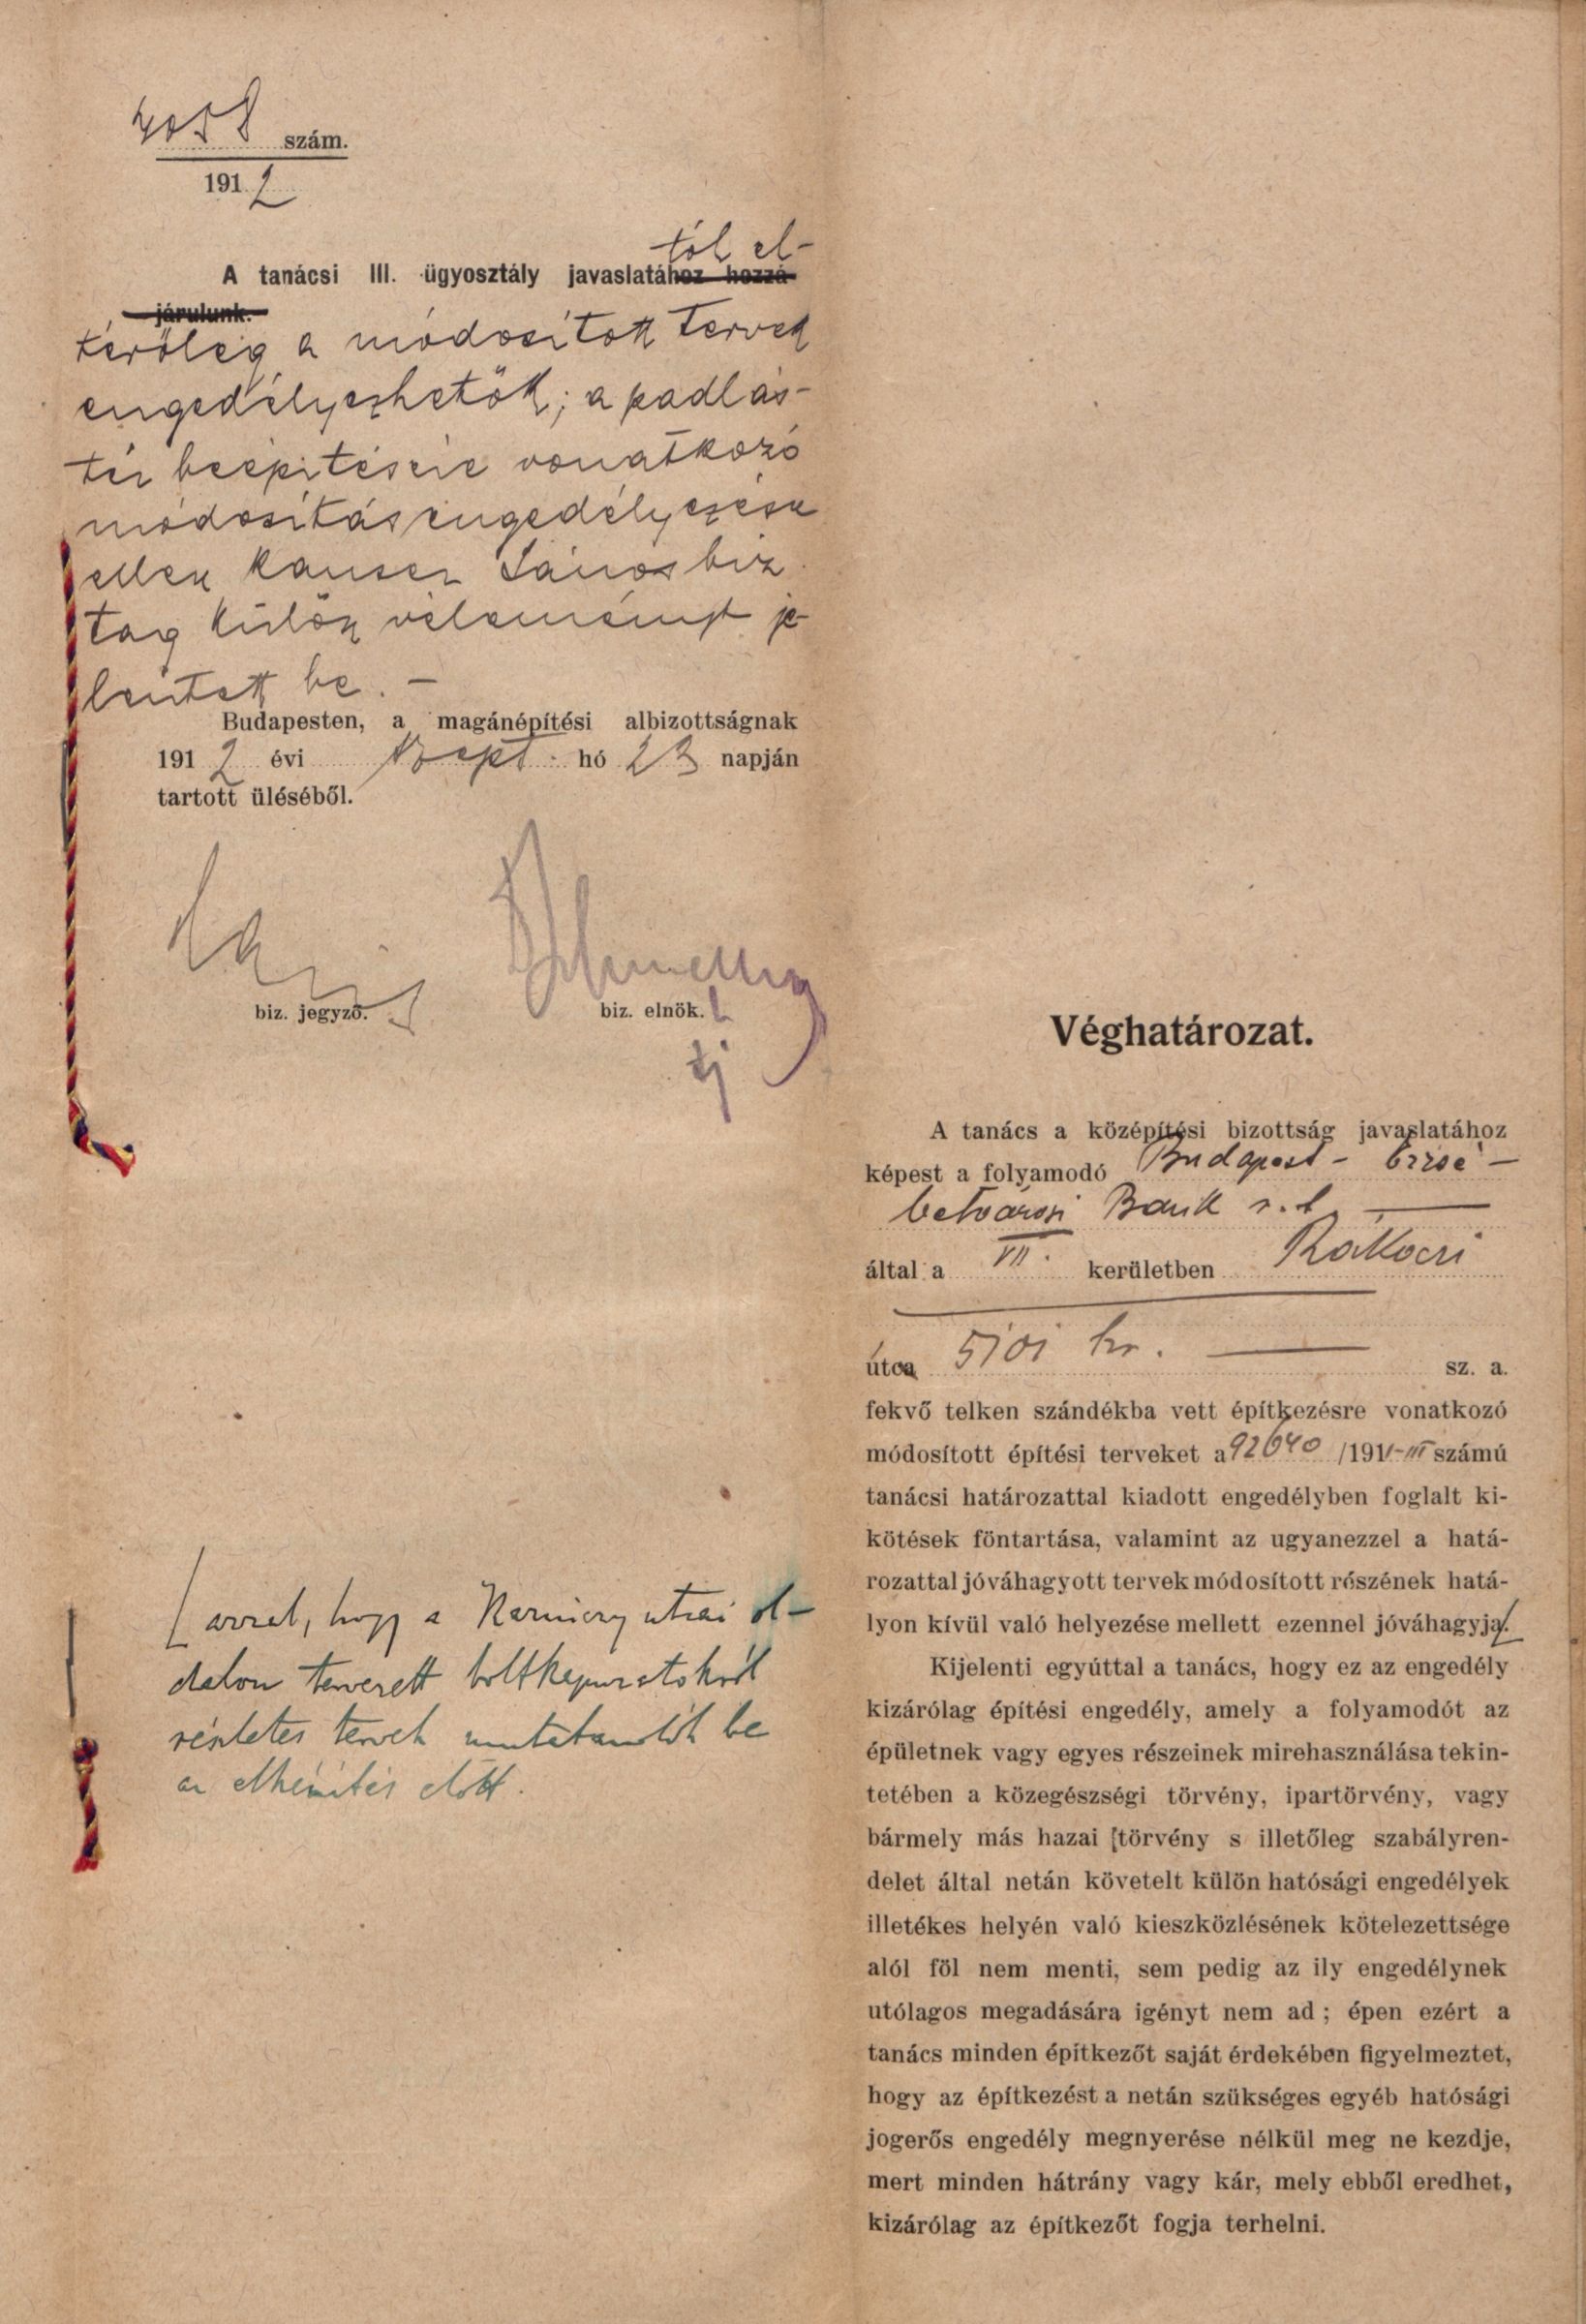 4058 szám.
1912
tól el-
A tanácsi III. ügyosztály javaslatához hozzá-
járulunk.
térőleg a módosított tervek
engedélyezhetők; a padlás-
tér beépitésére vonatkozó
módosítás engedélyezése
ellen Kauser János biz.
tag külön véleményt je-
lentett be. —
Budapesten, a magánépítési albizottságnak
1912 évi Szept. hó 23 napján
tartott üléséből.
biz. jegyző.
biz. elnök.
Véghatározat.
A tanács a középítési bizottság javaslatához
képest a folyamodó Budapest - Erzsé -
betvárosi Bank r.t. —
által a VII. kerületben Rákóczi
útca 5101 hr. — sz. a.
fekvő telken szándékba vett építkezésre vonatkozó
módosított építési terveket a 92640 /1911-III számú
tanácsi határozattal kiadott engedélyben foglalt ki-
kötések föntartása, valamint az ugyanezzel a hatá-
rozattal jóváhagyott tervek módosított részének hatá-
lyon kívül való helyezése mellett ezennel jóváhagyja.
azzal, hogy a utcai ol-
dalon tervezett boltkapuzatokról
részletes tervek mutatandók be
az elkészítés előtt.
Kijelenti egyúttal a tanács, hogy ez az engedély
kizárólag építési engedély, amely a folyamodót az
épületnek vagy egyes részeinek mirehasználása tekin-
tetében a közegészségi törvény, ipartörvény, vagy
bármely más hazai [törvény s illetőleg szabályren-
delet által netán követelt külön hatósági engedélyek
illetékes helyén való kieszközlésének kötelezettsége
alól föl nem menti, sem pedig az ily engedélynek
utólagos megadására igényt nem ad ; épen ezért a
tanács minden építkezőt saját érdekében figyelmeztet,
hogy az építkezést a netán szükséges egyéb hatósági
jogerős engedély megnyerése nélkül meg ne kezdje,
mert minden hátrány vagy kár, mely ebből eredhet,
kizárólag az építkezőt fogja terhelni.